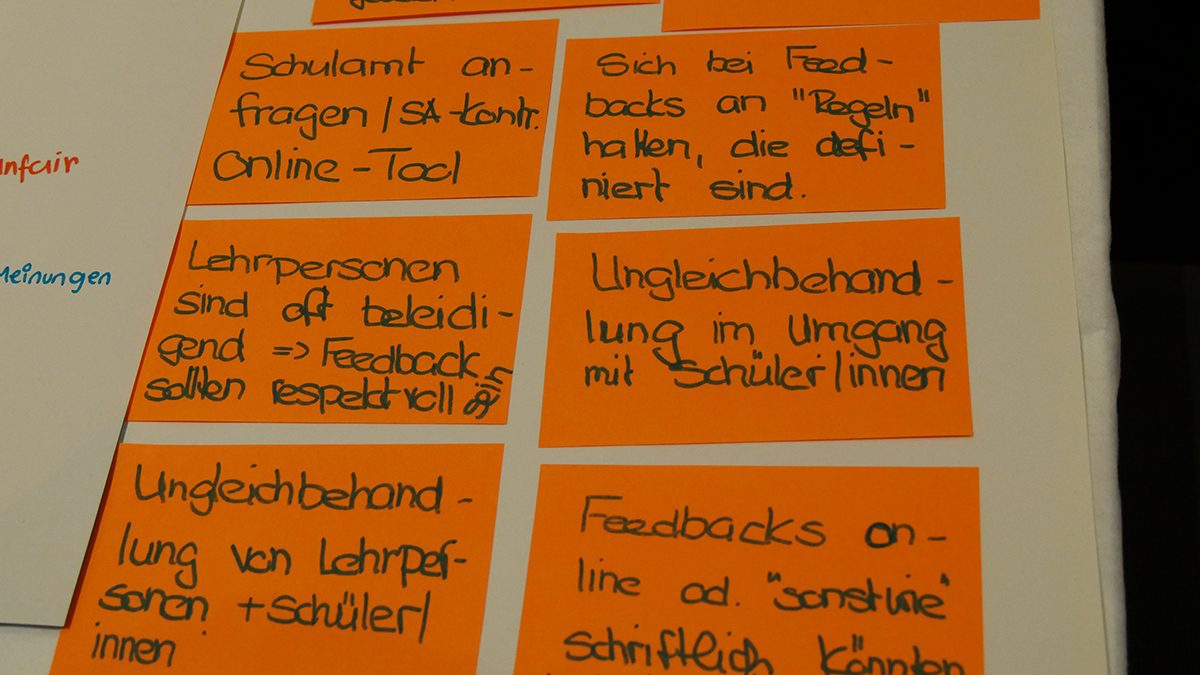 Schulamt an-
fragen / SA-Kontr.
Online-Tool
Sich bei Feed-
backs an "Regeln"
halten, die defi-
niert sind.
Lehrpersonen
sind oft beleidi-
gend => Feedback
sollten respektvoll
Ungleichbehand-
lung im Umgang
mit Schüler/innen
Ungleichbehand-
lung von Lehrper-
sonen + Schüler/
innen
Feedbacks on-
line od. "sonstwie"
schriftlich könnten
unfair
Meinungen